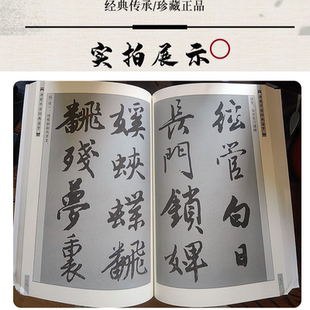 经典传承/珍藏正品
实拍展示
絃管白日
長門鎖婢
蛺蝶飜
飜殘夢裏